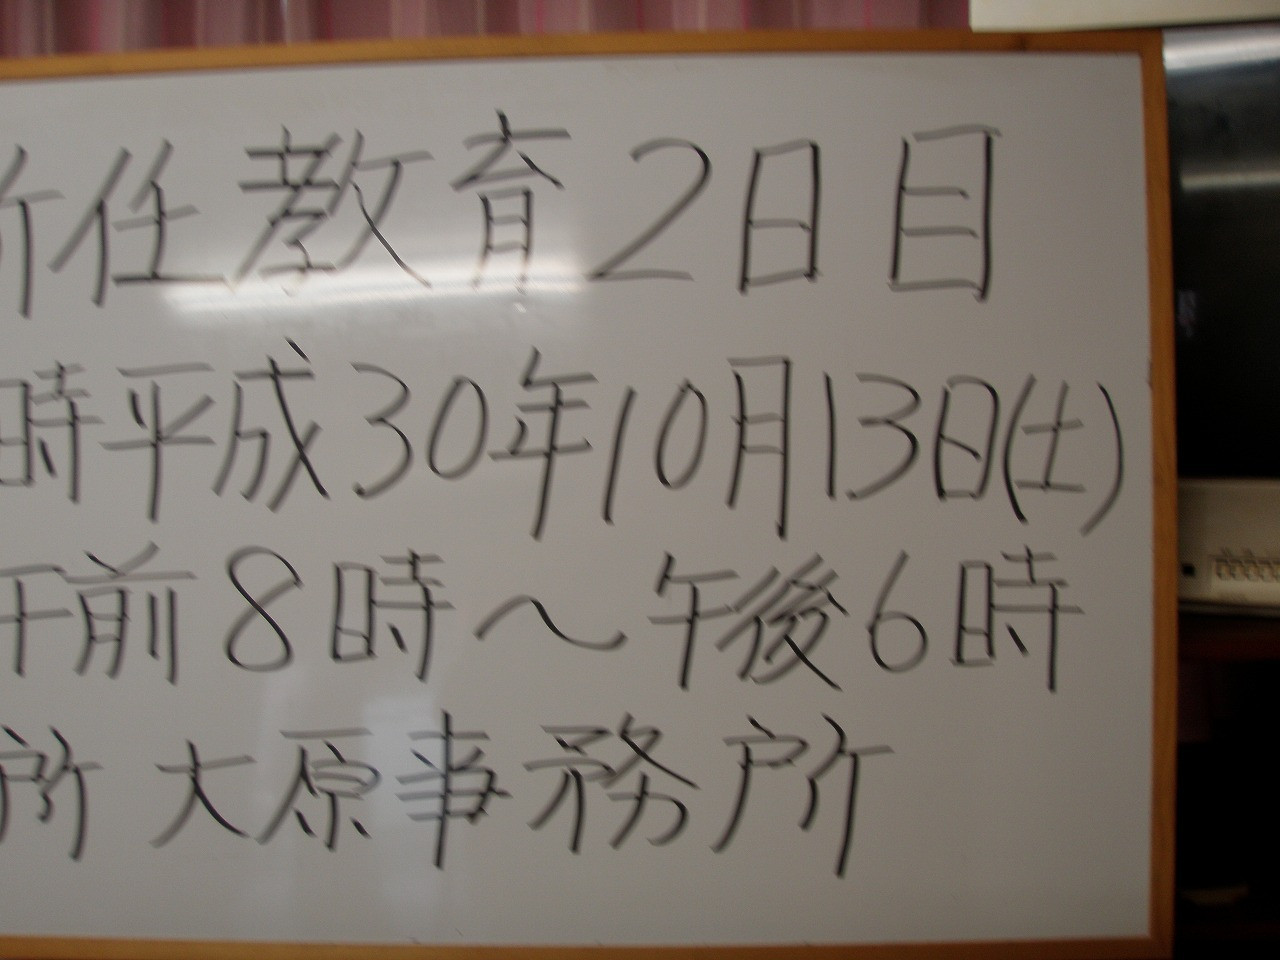 新任教育2日目
時平成30年10月13日(土)
午前8時〜午後6時
所 大原事務所